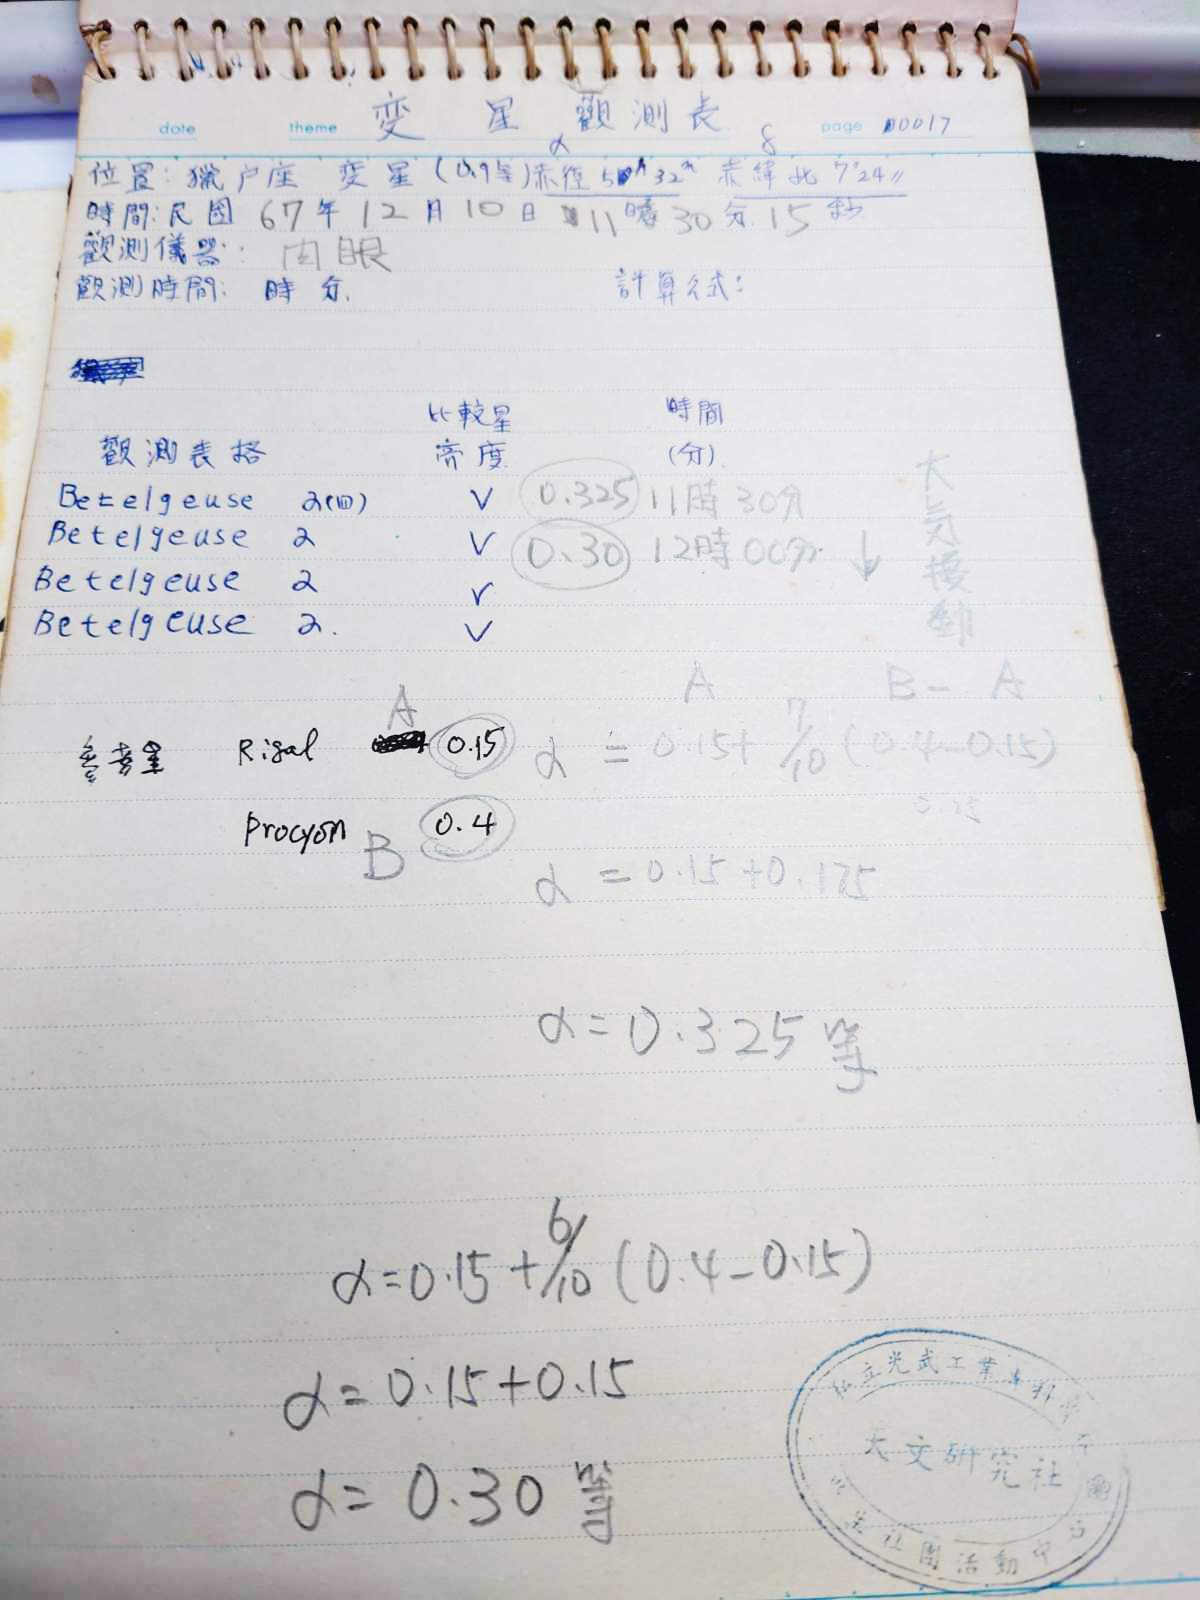 date theme 変星觀測表 page 00017
α δ
位置:獵户座 変星(0.9等)赤徑5h32m 赤緯北7°24"
時間:民國67年12月10日11時30分15秒
觀測儀器: 肉眼
觀測時間: 時 分. 計算公式:
比較星 時間
觀測表格 亮度 (分)
Betelgeuse α V 0.325 11時30分
Betelgeuse α V 0.30 12時00分 ↓
Betelgeuse α V
Betelgeuse α. V
大氣擾動
A A B-A
参考星 Rigal 0.15 α = 0.15+7/10(0.4-0.15)
0.25
Procyon 0.4
B α = 0.15+0.175
α=0.325等
α=0.15+6/10(0.4-0.15)
α=0.15+0.15
α=0.30等
私立光武工業專科學
天文研究社
社團活動中